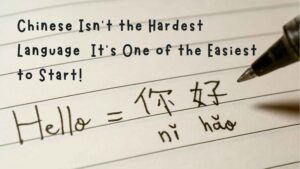 Chinese Isn't the Hardest
Language It's One of the Easiest
to Start!
Hello = 你好
nǐ hǎo